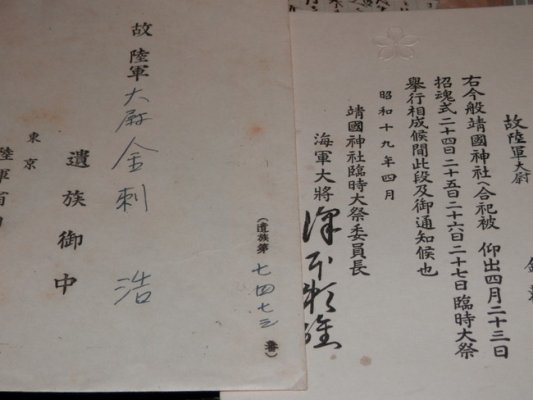 故陸軍大尉 金刺
右今般靖國神社ヘ合祀被 仰出四月二十三日
招魂式二十四日二十五日二十六日二十七日臨時大祭
擧行相成候間此段及御通知候也
昭和十九年四月
靖國神社臨時大祭委員長
海軍大將 澤本頼雄
(遺族第七四七三番)
故陸軍大尉金刺 浩
遺族御中
東京
陸軍省